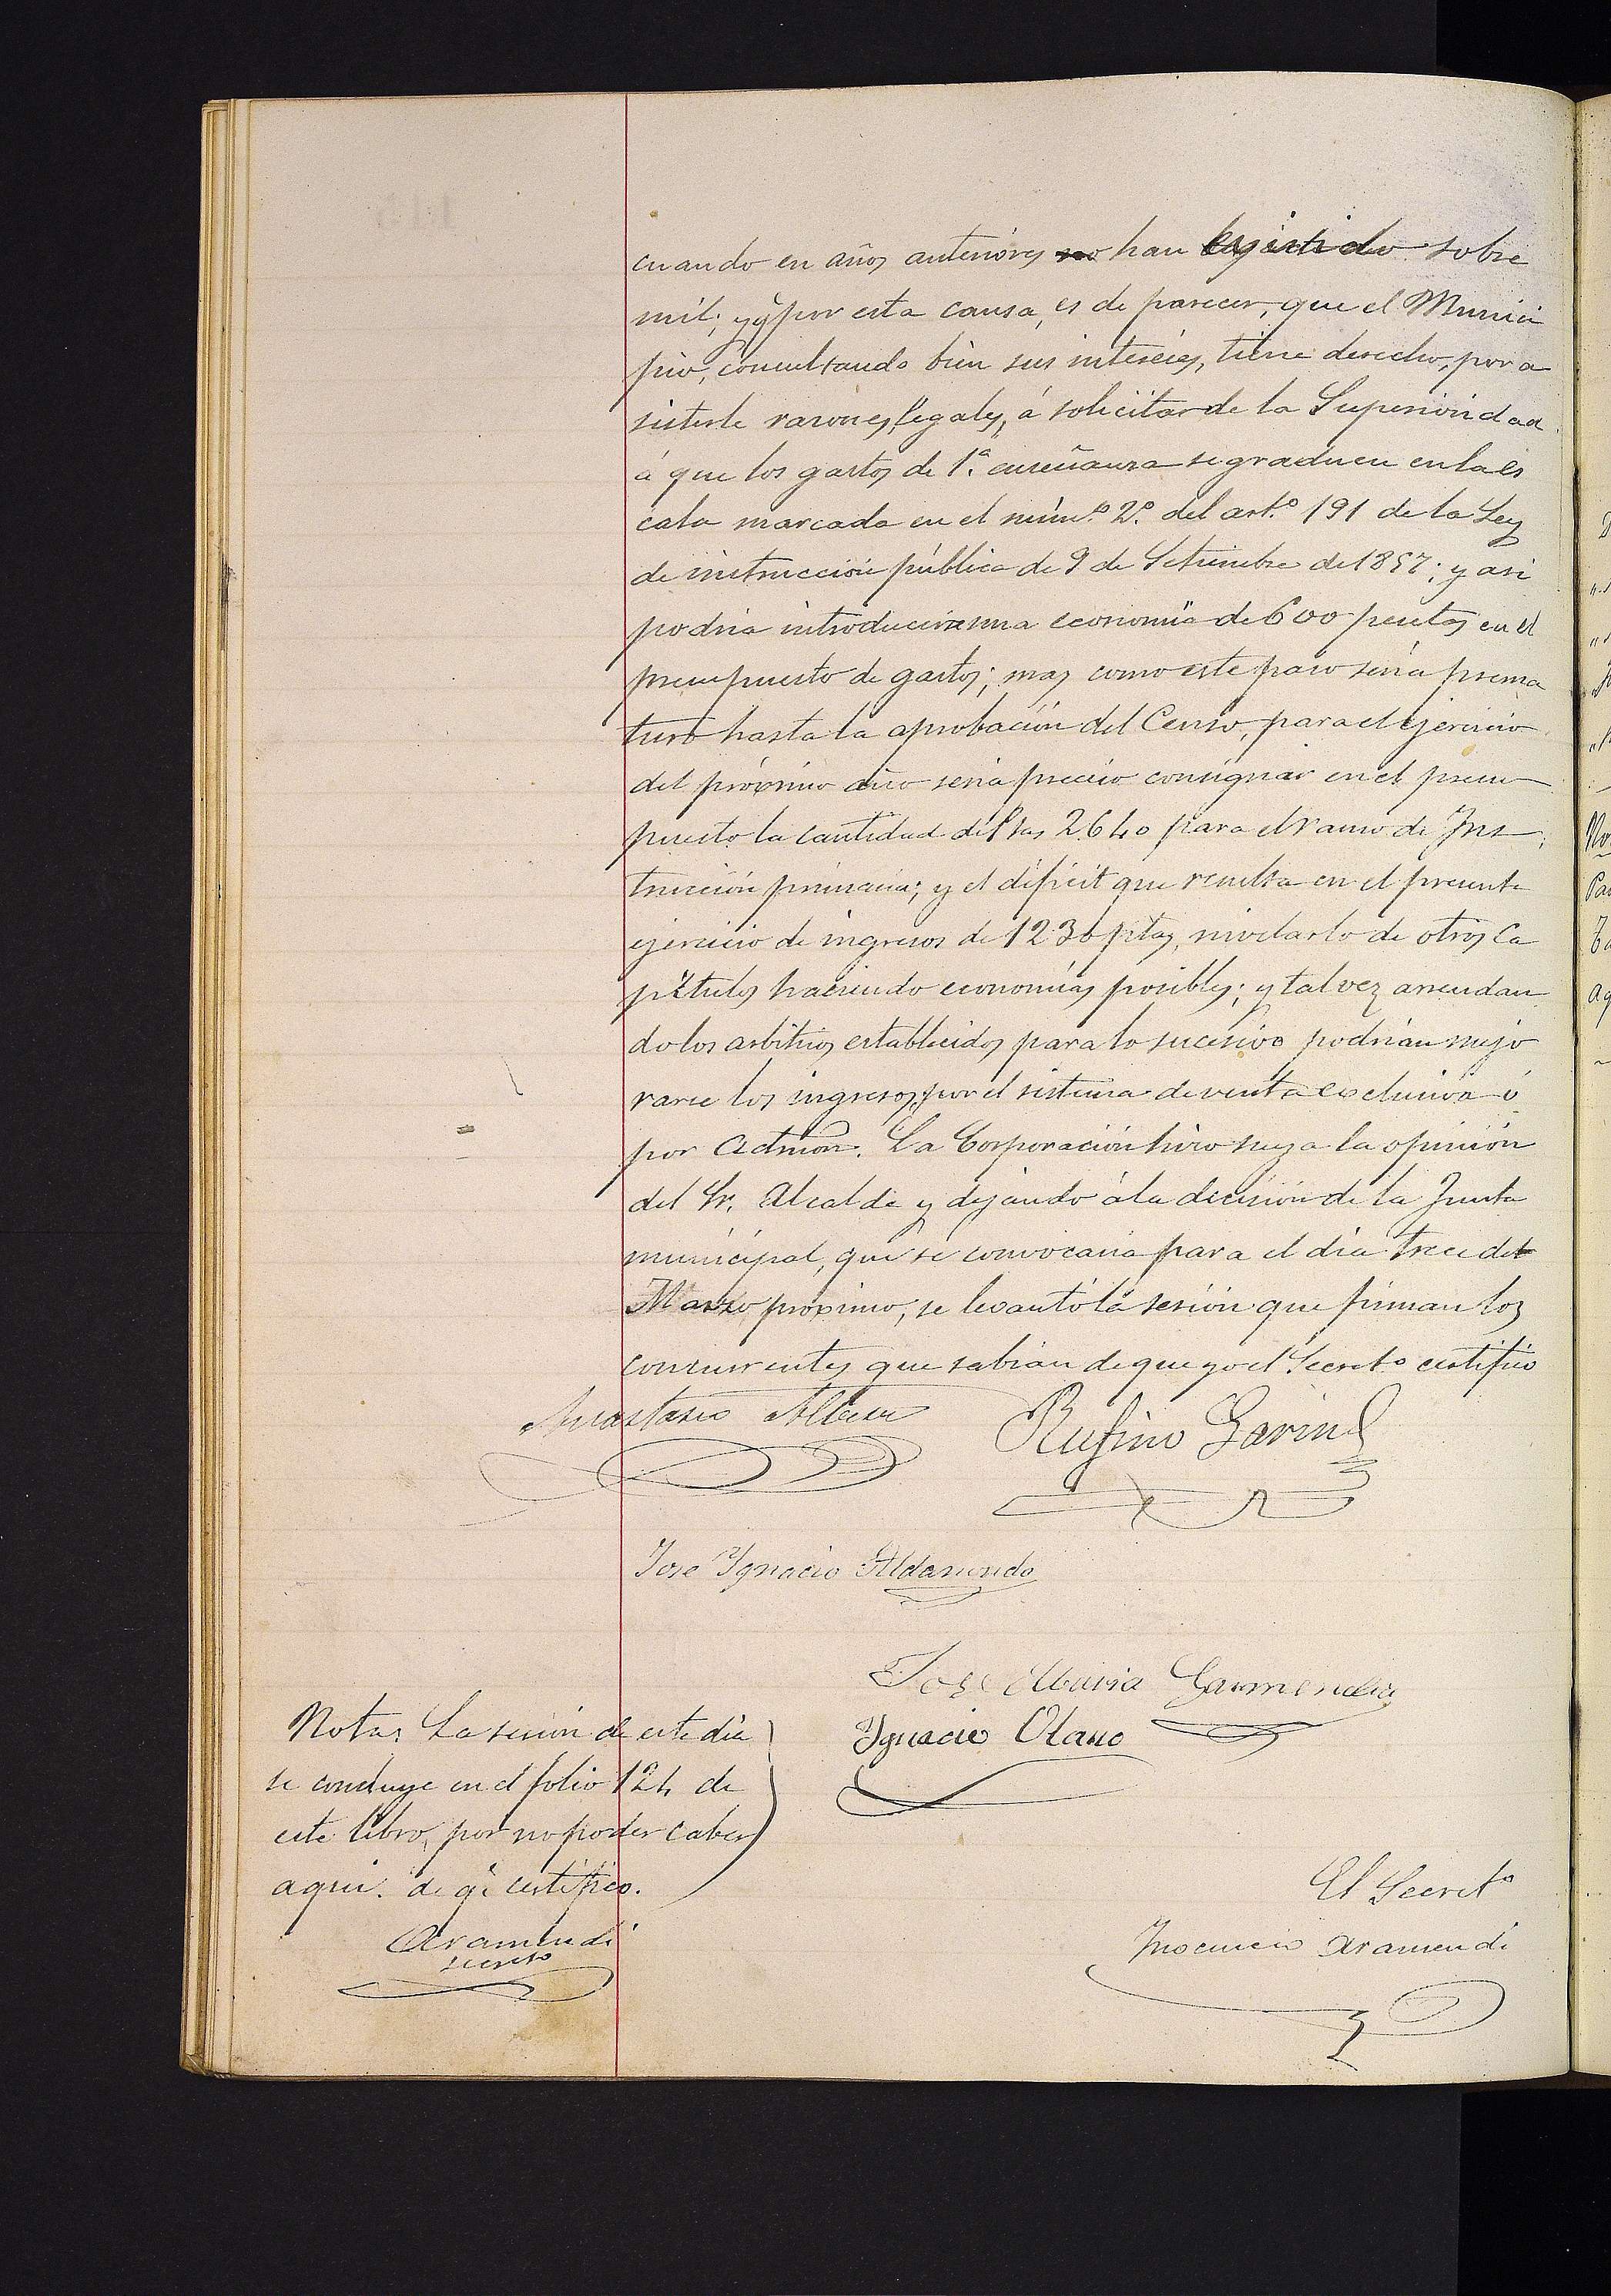 cuando en años anteriores no han existido sobre
mil; y q.e por esta causa, es de parecer, que el Munici
pio, consultando bien sus intereses, tiene derecho, por a
sisterle razones legales, á solicitar de la Superioridad
á que los gastos de 1.ª enseñanza se graduen en la es
cala marcada en el núm.º 2.º del art.º 191 de la Ley
de instrucción pública de 9 de Setiembre de 1857; y asi
podria introducirse una economia de 600 pesetas en el
presupuesto de gastos; mas como este paso seria prema
turo hasta la aprobación del Censo, para el ejercicio
del próximo año seria preciso consignar en el presu
puesto la cantidad de Ptas 2640 para el ramo de Ins
trucción primaria; y el déficit que resulta en el presente
ejercicio de ingresos de 1236 ptas, nivelarlo de otros Ca
pítulos haciendo economías posibles; y tal vez arrendan
do los arbitrios establecidos para lo sucesivo podrian mejo
rarse los ingresos, por el sistema de venta exclusiva ó
por Admón. La Corporación hizo suya la opinión
del Sr. Alcalde y dejando á la decisión de la Junta
municipal, que se convocaria para el dia trece del
Marzo próximo, se levantó la sesión que firman los
concurrentes que sabian de que yo el Secret.º certifico
Anastasio
Rufino Garin
Jose Ignacio Aldasundo
Jose Maria Garmendia
Ignacio Olano
Nota: La sesión de este dia
se concluye en el folio 124 de
este libro, por no poder caber
aqui. de q.e certifico.
Aramendi
secreto
El Secret.º
Inocencio Aramendi